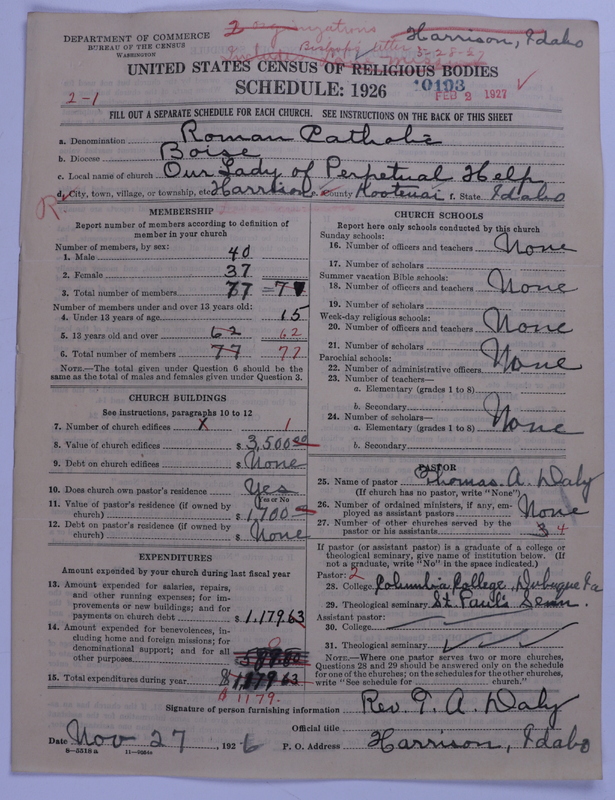 2 organizations
Harrison, Idaho
DEPARTMENT OF COMMERCE
BUREAU OF THE CENSUS
WASHINGTON
Bishop's letter 3-28-27
UNITED STATES CENSUS OF RELIGIOUS BODIES
SCHEDULE: 1926
10193
FEB 2 1927
2-1
FILL OUT A SEPARATE SCHEDULE FOR EACH CHURCH. SEE INSTRUCTIONS ON THE BACK OF THIS SHEET
a. Denomination Roman Catholic
b. Diocese Boise
c. Local name of church Our Lady of Perpetual Help
d. City, town, village, or township, etc. Harrison e. County Kootenai f. State Idaho
R
MEMBERSHIP
Report number of members according to definition of
member in your church
Number of members, by sex:
1. Male 40
2. Female 37
3. Total number of members 77 77
Number of members under and over 13 years old:
4. Under 13 years of age 15
5. 13 years old and over 62 62
6. Total number of members 77 77
NOTE.—The total given under Question 6 should be the
same as the total of males and females given under Question 3.
CHURCH BUILDINGS
See instructions, paragraphs 10 to 12
7. Number of church edifices X 1
8. Value of church edifices $ 3,500 00
9. Debt on church edifices $ None
10. Does church own pastor's residence Yes
Yes or No
11. Value of pastor's residence (if owned by
church) $ 1,700
12. Debt on pastor's residence (if owned by
church) $ None
EXPENDITURES
Amount expended by your church during last fiscal year
13. Amount expended for salaries, repairs,
and other running expenses; for im-
provements or new buildings; and for
payments on church debt $ 1,179.63
14. Amount expended for benevolences, in-
cluding home and foreign missions; for
denominational support; and for all
other purposes
15. Total expenditures during year $ 1179 63
1179.
CHURCH SCHOOLS
Report here only schools conducted by this church
Sunday schools:
16. Number of officers and teachers None
17. Number of scholars
Summer vacation Bible schools:
18. Number of officers and teachers None
19. Number of scholars
Week-day religious schools:
20. Number of officers and teachers None
21. Number of scholars
Parochial schools:
22. Number of administrative officers None
23. Number of teachers—
a. Elementary (grades 1 to 8)
b. Secondary
24. Number of scholars—
a. Elementary (grades 1 to 8) None
b. Secondary
PASTOR
25. Name of pastor Thomas. A. Daly
(If church has no pastor, write "None")
26. Number of ordained ministers, if any, em-
ployed as assistant pastors None
27. Number of other churches served by the
pastor or his assistants 3 4
If pastor (or assistant pastor) is a graduate of a college or
theological seminary, give name of institution below. (If
not a graduate, write "No" in the space indicated.)
Pastor: 2
28. College Columbia College, Dubuque Ia
29. Theological seminary St. Paul's Semn.
Assistant pastor:
30. College
31. Theological seminary
NOTE.—Where one pastor served two or more churches,
Questions 28 and 29 should be answered only on the schedule
for one of the churches; on the schedules for the other churches,
write "See schedule for church."
Signature of person furnishing information Rev. T. A. Daly
Official title
Date Nov 27, 1926 P. O. Address Harrison, Idaho
8-5518a